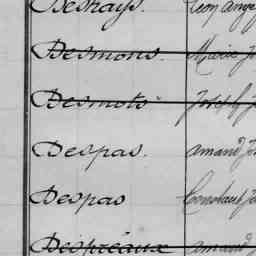 Deshays. Léon Ange
Desmons. Marie J
Desmots Joseph J
Despas. amand J
Despas Constant Jo
Despréaux amand